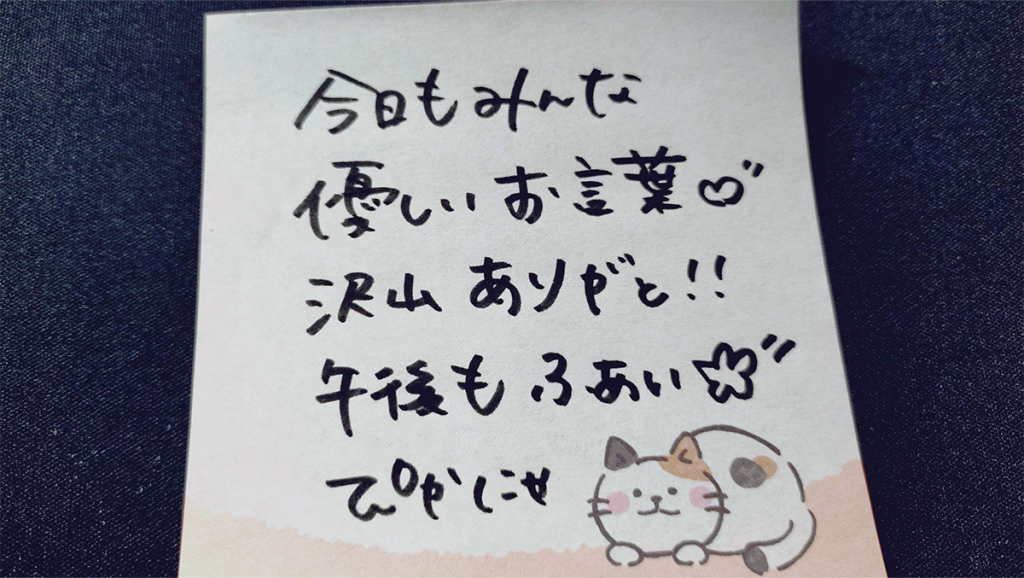 今日もみんな
優しいお言葉♡"
沢山ありがと!!
午後もふぁい☆"
ぴかにゃ